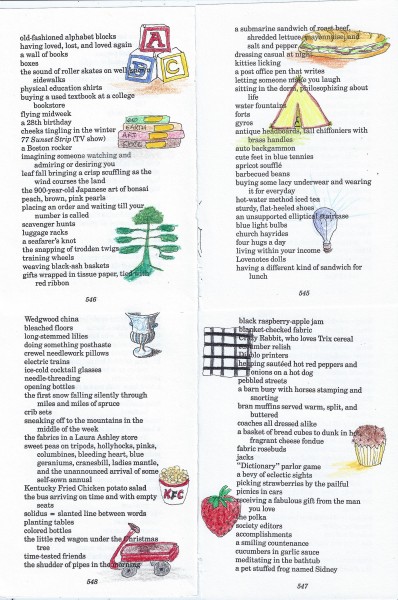 old-fashioned alphabet blocks
having loved, lost, and loved again
a wall of books
boxes
the sound of roller skates on well-known
sidewalks
physical education shirts
buying a used textbook at a college
bookstore
flying midweek
a 28th birthday
cheeks tingling in the winter
77 Sunset Strip (TV show)
a Boston rocker
imagining someone watching and
admiring or desiring you
leaf fall bringing a crisp scuffling as the
wind courses the land
the 900-year-old Japanese art of bonsai
peach, brown, pink pearls
placing an order and waiting till your
number is called
scavenger hunts
luggage racks
a seafarer's knot
the snapping of trodden twigs
training wheels
weaving black-ash baskets
gifts wrapped in tissue paper, tied with
red ribbon
546
A
B
C
EARTH
ART
a submarine sandwich of roast beef,
shredded lettuce, mayonnaise, and
salt and pepper
dressing casual at night
kitties licking
a post office pen that writes
letting someone make you laugh
sitting in the dorm, philosophizing about
life
water fountains
forts
gyros
antique headboards, tall chiffoniers with
brass handles
auto backgammon
cute feet in blue tennies
apricot soufflé
barbecued beans
buying some lacy underwear and wearing
it for everyday
hot-water method iced tea
sturdy, flat-heeled shoes
an unsupported elliptical staircase
blue light bulbs
church hayrides
four hugs a day
living within your income
Lovenotes dolls
having a different kind of sandwich for
lunch
545
Wedgwood china
bleached floors
long-stemmed lilies
doing something posthaste
crewel needlework pillows
electric trains
ice-cold cocktail glasses
needle-threading
opening bottles
the first snow falling silently through
miles and miles of spruce
crib sets
sneaking off to the mountains in the
middle of the week
the fabrics in a Laura Ashley store
sweet peas on tripods, hollyhocks, pinks,
columbines, bleeding heart, blue
geraniums, cranesbill, ladies mantle,
and the unannounced arrival of some
self-sown annual
Kentucky Fried Chicken potato salad
the bus arriving on time and with empty
seats
solidus = slanted line between words
planting tables
colored bottles
the little red wagon under the Christmas
tree
time-tested friends
the shudder of pipes in the morning
548
KFC
black raspberry-apple jam
blanket-checked fabric
Crazy Rabbit, who loves Trix cereal
cucumber relish
Diablo printers
heaping sautéed hot red peppers and
onions on a hot dog
pebbled streets
a barn busy with horses stamping and
snorting
bran muffins served warm, split, and
buttered
coaches all dressed alike
a basket of bread cubes to dunk in hot,
fragrant cheese fondue
fabric rosebuds
jacks
"Dictionary" parlor game
a bevy of eclectic sights
picking strawberries by the pailful
picnics in cars
receiving a fabulous gift from the man
you love
the polka
society editors
accomplishments
a smiling countenance
cucumbers in garlic sauce
meditating in the bathtub
a pet stuffed frog named Sidney
547